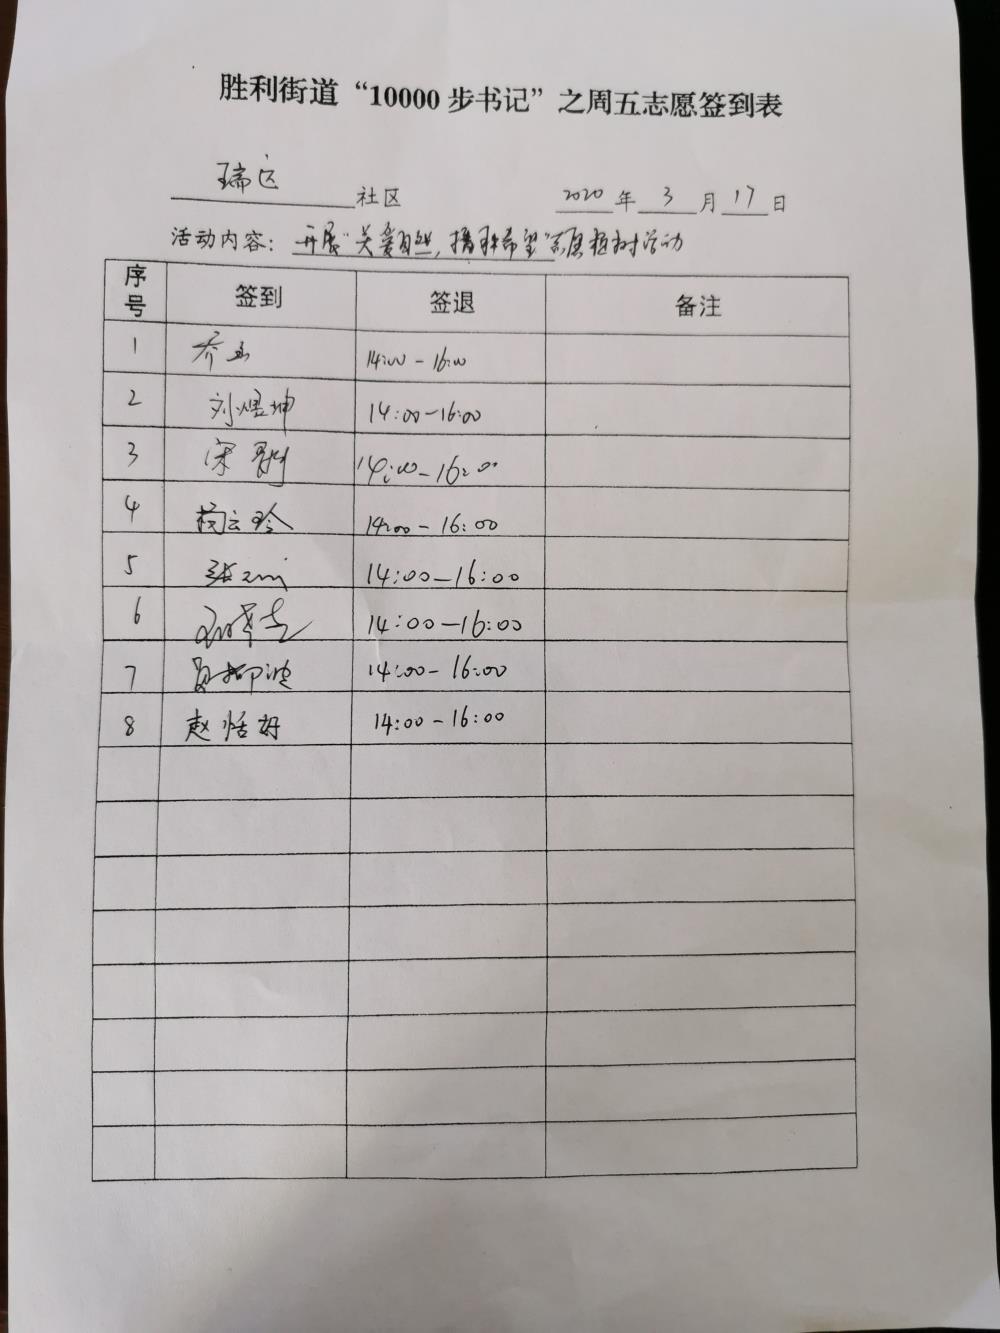 胜利街道“10000步书记”之周五志愿签到表
瑞达社区 2020年3月17日
活动内容：开展“关爱自然，播种希望”志愿植树活动
序号 签到 签退 备注
1 乔 14:00-16:00
2 刘煜坤 14:00-16:00
3 宋 14:00-16:00
4 杨云玲 14:00-16:00
5 张 14:00-16:00
6 14:00-16:00
7 14:00-16:00
8 赵恬好 14:00-16:00